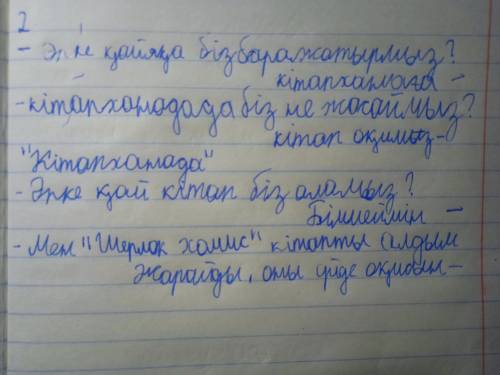 2
- Әпке қайяқа біз баражатырмыз?
кітапханаға -
- кітапханадада біз не жасаймыз?
кітап оқимыз -
"Кітапханада"
- Әпке қай кітап біз аламыз?
Білмеймін -
- Мен "Шерлок холмс" кітапты алдым
Жарайды, оны үйде оқисын -